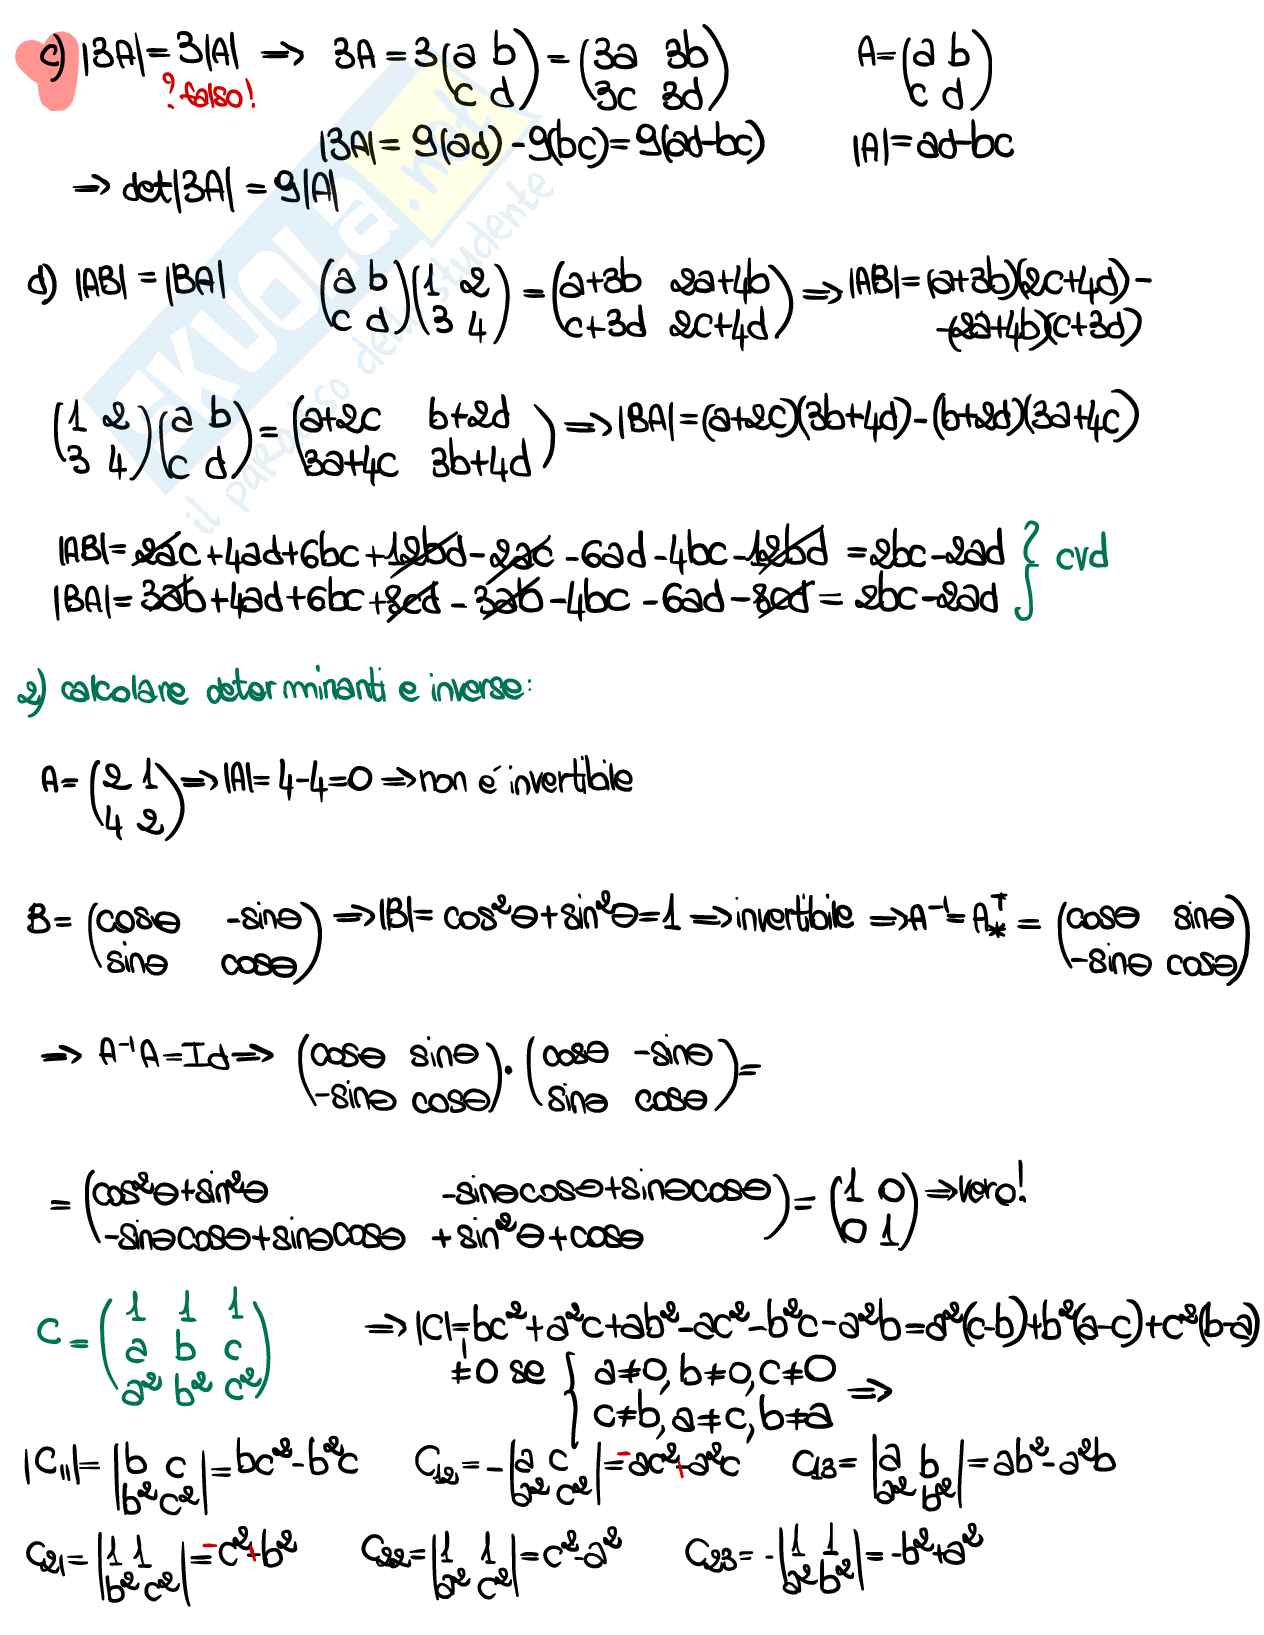 c) |3A| = 3|A| => 3A = 3(a b / c d) = (3a 3b / 3c 3d) A = (a b / c d)
? falso!
|3A| = 9(ad) - 9(bc) = 9(ad-bc) |A| = ad-bc
=> det|3A| = 9|A|
d) |AB| = |BA| (a b / c d)(1 2 / 3 4) = (a+3b 2a+4b / c+3d 2c+4d) => |AB| = (a+3b)(2c+4d) -
-(2a+4b)(c+3d)
(1 2 / 3 4)(a b / c d) = (a+2c b+2d / 3a+4c 3b+4d) => |BA| = (a+2c)(3b+4d) - (b+2d)(3a+4c)
|AB| = 2ac + 4ad + 6bc + 12bd - 2ac - 6ad - 4bc - 12bd = 2bc - 2ad } cvd
|BA| = 3ab + 4ad + 6bc + 8cd - 3ab - 4bc - 6ad - 8cd = 2bc - 2ad
2) calcolare determinanti e inverse:
A = (2 1 / 4 2) => |A| = 4-4=0 => non è invertibile
B = (cosθ -sinθ / sinθ cosθ) => |B| = cos²θ + sin²θ = 1 => invertibile => A⁻¹ = A*ᵀ = (cosθ sinθ / -sinθ cosθ)
=> A⁻¹A = Id => (cosθ sinθ / -sinθ cosθ) · (cosθ -sinθ / sinθ cosθ) =
= (cos²θ+sin²θ -sinθcosθ+sinθcosθ / -sinθcosθ+sinθcosθ +sin²θ+cosθ) = (1 0 / 0 1) => vero!
C = (1 1 1 / a b c / a² b² c²) => |C| = bc² + a²c + ab² - ac² - b²c - a²b = a²(c-b) + b²(a-c) + c²(b-a)
≠0 se { a≠0, b≠0, c≠0 =>
c≠b, a≠c, b≠a
|C₁₁| = |b c / b² c²| = bc² - b²c C₁₂ = -|a c / a² c²| = -ac² + a²c C₁₃ = |a b / a² b²| = ab² - a²b
C₂₁ = -|1 1 / b² c²| = -c² + b² C₂₂ = |1 1 / a² c²| = c² - a² C₂₃ = -|1 1 / a² b²| = -b² + a²
SKUOLA.net
il paradiso dello studente